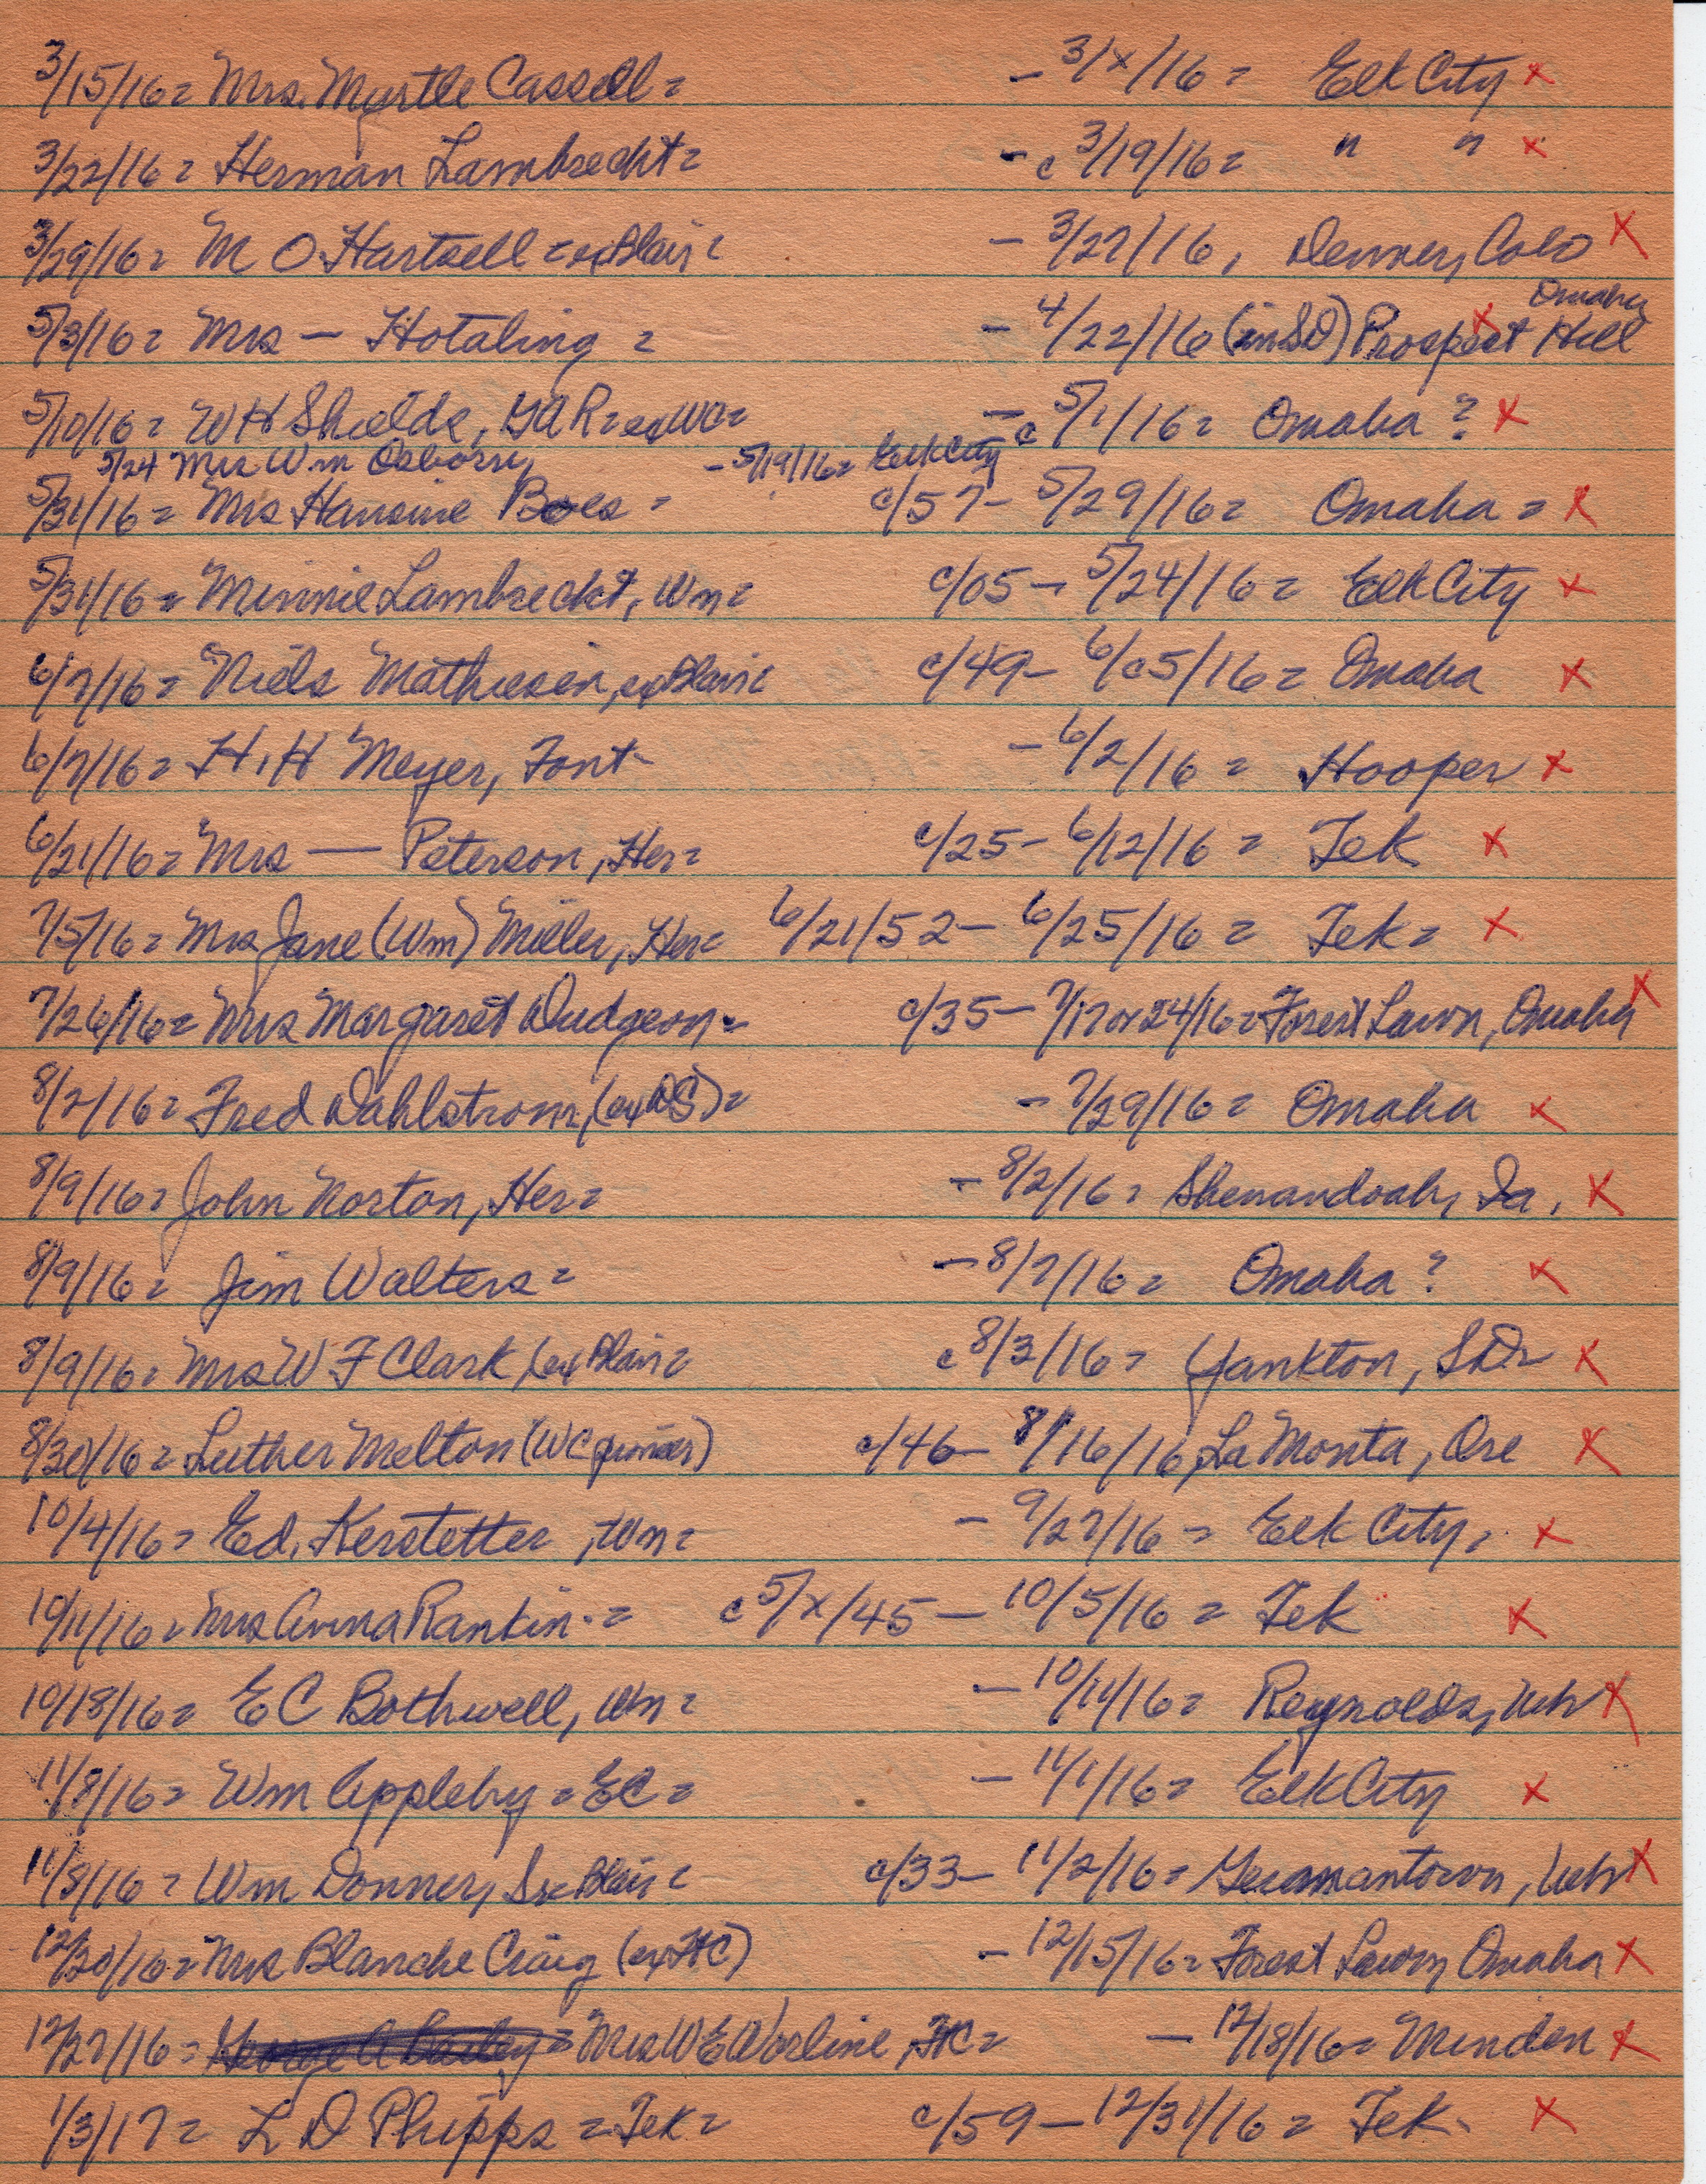 3/15/16= Mrs. Myrtle Cassell= - 3/x/16= Elk City x
3/22/16= Herman Lambrecht= - c 3/19/16= " " x
3/29/16= M O Hartsell = ex Blair= - 3/27/16, Denver, Colo x
Omaha
5/3/16= Mrs — Hotaling = - 4/22/16 (in SD) Prospect Hill x
5/10/16= WH Shields, GAR= ex WC= - c 5/1/16= Omaha ? x
5/24 Mrs Wm Osborn, - 5/19/16= Elk City
5/31/16= Mrs Hansine Boes = c/57- 5/29/16= Omaha = x
5/31/16= Minnie Lambrecht, Wn= c/05- 5/24/16= Elk City x
6/7/16= Niels Mathiesen, ex Blair= c/49- 6/c5/16= Omaha x
6/7/16= H.H Meyer, Font- - 6/2/16= Hooper x
6/21/16= Mrs — Peterson, Her= c/25- 6/12/16= Tek x
7/5/16= Mrs Jane (Wm) Miller, Her= 6/21/52- 6/25/16= Tek= x
7/26/16= Mrs Margaret Dudgeon- c/35- 7/17 or 24/16= Forest Lawn, Omaha x
8/2/16= Fred Dahlstrom, (ex DS)= - 7/29/16= Omaha x
8/9/16= John Norton, Her= - 8/2/16= Shenandoah, Ia, x
8/9/16= Jim Walters= - 8/7/16= Omaha ? x
8/9/16= Mrs W F Clark, (ex Blair= c 8/3/16= Yankton, SD= x
8/30/16= Luther Melton (WC pioneer) c/46- 8/16/16, La Monta, Ore x
10/4/16= Ed. Kerstetter, Wn= - 9/27/16= Elk City, x
10/11/16= Mrs Anna Rankin.= c 5/x/45- 10/5/16= Tek x
10/18/16= E C Bothwell, Wn= - 10/14/16= Reynolds, Neb x
11/8/16= Wm Appleby = EC= - 11/1/16= Elk City x
11/8/16= Wm Donner, Sr= Blair= c/33- 11/2/16= Germantown, Neb x
12/20/16= Mrs Blanche Craig (ex HC) - 12/15/16= Forest Lawn, Omaha x
12/27/16= George A Bailey= Mrs W E Worline, HC= - 12/18/16= Minden x
1/3/17= L D Phipps = Tek= c/59- 12/31/16= Tek- x